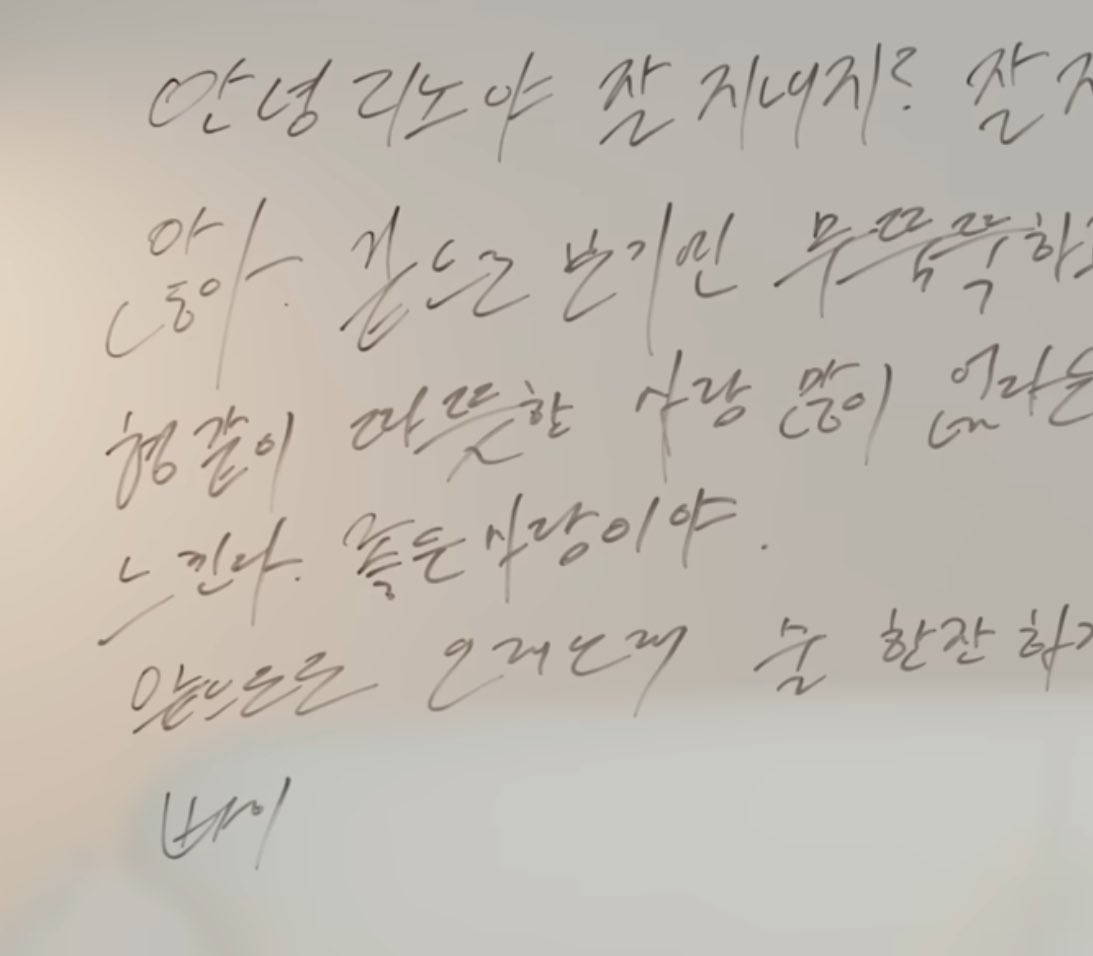 안녕 리노야 잘 지내지? 잘
많아. 겉으로 보기엔 무뚝뚝하
형같이 따뜻한 사랑 많이 없다는
느낀다. 좋은 사람이야.
앞으로도 오래오래 술 한잔 하
바이